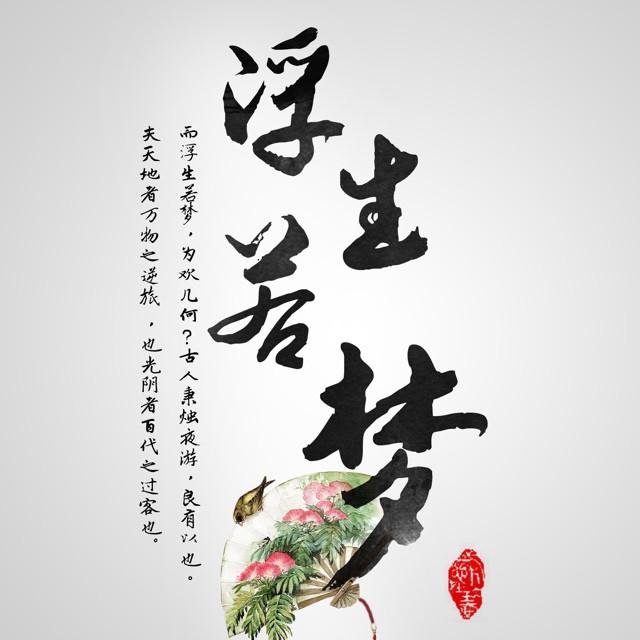 浮生若梦
夫天地者万物之逆旅，也光阴者百代之过客也。
而浮生若梦，为欢几何？古人秉烛夜游，良有以也。